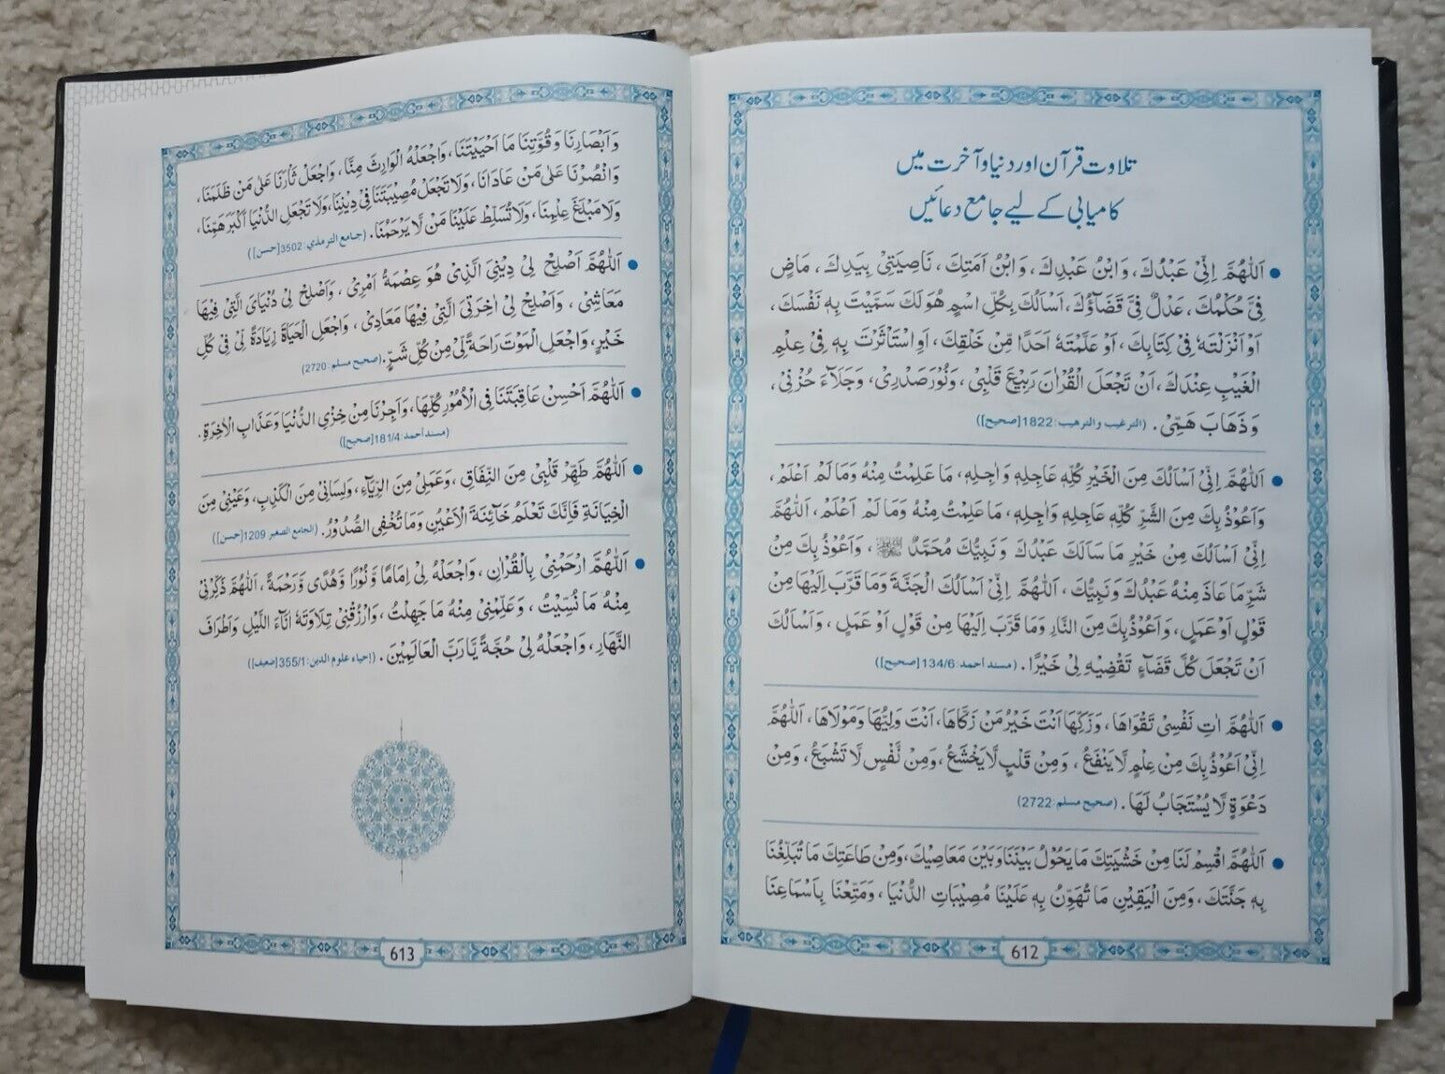 تلاوت قرآن اور دنیا و آخرت میں
کامیابی کے لیے جامع دعائیں
● اَللّٰهُمَّ اِنِّيْ عَبْدُكَ، وَابْنُ عَبْدِكَ، وَابْنُ اَمَتِكَ، نَاصِيَتِيْ بِيَدِكَ، مَاضٍ
فِيَّ حُكْمُكَ، عَدْلٌ فِيَّ قَضَاؤُكَ، اَسْاَلُكَ بِكُلِّ اسْمٍ هُوَ لَكَ سَمَّيْتَ بِهٖ نَفْسَكَ،
اَوْ اَنْزَلْتَهٗ فِيْ كِتَابِكَ، اَوْ عَلَّمْتَهٗ اَحَدًا مِّنْ خَلْقِكَ، اَوِ اسْتَاْثَرْتَ بِهٖ فِيْ عِلْمِ
الْغَيْبِ عِنْدَكَ، اَنْ تَجْعَلَ الْقُرْاٰنَ رَبِيْعَ قَلْبِيْ، وَنُوْرَ صَدْرِيْ، وَجَلَآءَ حُزْنِيْ،
وَذَهَابَ هَمِّيْ. (الترغيب والترهيب: 1822[صحيح])
● اَللّٰهُمَّ اِنِّيْ اَسْاَلُكَ مِنَ الْخَيْرِ كُلِّهٖ عَاجِلِهٖ وَاٰجِلِهٖ، مَا عَلِمْتُ مِنْهُ وَمَا لَمْ اَعْلَمْ،
وَاَعُوْذُ بِكَ مِنَ الشَّرِّ كُلِّهٖ عَاجِلِهٖ وَاٰجِلِهٖ، مَا عَلِمْتُ مِنْهُ وَمَا لَمْ اَعْلَمْ، اَللّٰهُمَّ
اِنِّيْ اَسْاَلُكَ مِنْ خَيْرِ مَا سَاَلَكَ عَبْدُكَ وَنَبِيُّكَ مُحَمَّدٌ ﷺ، وَاَعُوْذُ بِكَ مِنْ
شَرِّ مَا عَاذَ مِنْهُ عَبْدُكَ وَنَبِيُّكَ، اَللّٰهُمَّ اِنِّيْ اَسْاَلُكَ الْجَنَّةَ وَمَا قَرَّبَ اِلَيْهَا مِنْ
قَوْلٍ اَوْ عَمَلٍ، وَاَعُوْذُ بِكَ مِنَ النَّارِ وَمَا قَرَّبَ اِلَيْهَا مِنْ قَوْلٍ اَوْ عَمَلٍ، وَاَسْاَلُكَ
اَنْ تَجْعَلَ كُلَّ قَضَآءٍ تَقْضِيْهِ لِيْ خَيْرًا. (مسند احمد: 134/6[صحيح])
● اَللّٰهُمَّ اٰتِ نَفْسِيْ تَقْوَاهَا، وَزَكِّهَا اَنْتَ خَيْرُ مَنْ زَكَّاهَا، اَنْتَ وَلِيُّهَا وَمَوْلَاهَا، اَللّٰهُمَّ
اِنِّيْ اَعُوْذُ بِكَ مِنْ عِلْمٍ لَّا يَنْفَعُ، وَمِنْ قَلْبٍ لَّا يَخْشَعُ، وَمِنْ نَّفْسٍ لَّا تَشْبَعُ، وَمِنْ
دَعْوَةٍ لَّا يُسْتَجَابُ لَهَا. (صحيح مسلم: 2722)
● اَللّٰهُمَّ اقْسِمْ لَنَا مِنْ خَشْيَتِكَ مَا يَحُوْلُ بَيْنَنَا وَبَيْنَ مَعَاصِيْكَ، وَمِنْ طَاعَتِكَ مَا تُبَلِّغُنَا
بِهٖ جَنَّتَكَ، وَمِنَ الْيَقِيْنِ مَا تُهَوِّنُ بِهٖ عَلَيْنَا مُصِيْبَاتِ الدُّنْيَا، وَمَتِّعْنَا بِاَسْمَاعِنَا
612
وَاَبْصَارِنَا وَقُوَّتِنَا مَا اَحْيَيْتَنَا، وَاجْعَلْهُ الْوَارِثَ مِنَّا، وَاجْعَلْ ثَاْرَنَا عَلٰى مَنْ ظَلَمَنَا،
وَانْصُرْنَا عَلٰى مَنْ عَادَانَا، وَلَا تَجْعَلْ مُصِيْبَتَنَا فِيْ دِيْنِنَا، وَلَا تَجْعَلِ الدُّنْيَا اَكْبَرَ هَمِّنَا،
وَلَا مَبْلَغَ عِلْمِنَا، وَلَا تُسَلِّطْ عَلَيْنَا مَنْ لَّا يَرْحَمُنَا. (جامع الترمذي: 3502[حسن])
● اَللّٰهُمَّ اَصْلِحْ لِيْ دِيْنِيَ الَّذِيْ هُوَ عِصْمَةُ اَمْرِيْ، وَاَصْلِحْ لِيْ دُنْيَايَ الَّتِيْ فِيْهَا
مَعَاشِيْ، وَاَصْلِحْ لِيْ اٰخِرَتِيَ الَّتِيْ فِيْهَا مَعَادِيْ، وَاجْعَلِ الْحَيَاةَ زِيَادَةً لِّيْ فِيْ كُلِّ
خَيْرٍ، وَاجْعَلِ الْمَوْتَ رَاحَةً لِّيْ مِنْ كُلِّ شَرٍّ. (صحيح مسلم: 2720)
● اَللّٰهُمَّ اَحْسِنْ عَاقِبَتَنَا فِي الْاُمُوْرِ كُلِّهَا، وَاَجِرْنَا مِنْ خِزْيِ الدُّنْيَا وَعَذَابِ الْاٰخِرَةِ.
(مسند احمد: 181/4[صحيح])
● اَللّٰهُمَّ طَهِّرْ قَلْبِيْ مِنَ النِّفَاقِ، وَعَمَلِيْ مِنَ الرِّيَآءِ، وَلِسَانِيْ مِنَ الْكَذِبِ، وَعَيْنِيْ مِنَ
الْخِيَانَةِ فَاِنَّكَ تَعْلَمُ خَآئِنَةَ الْاَعْيُنِ وَمَا تُخْفِي الصُّدُوْرُ. (الجامع الصغير: 1209[حسن])
● اَللّٰهُمَّ ارْحَمْنِيْ بِالْقُرْاٰنِ، وَاجْعَلْهُ لِيْ اِمَامًا وَّنُوْرًا وَّهُدًى وَّرَحْمَةً، اَللّٰهُمَّ ذَكِّرْنِيْ
مِنْهُ مَا نُسِّيْتُ، وَعَلِّمْنِيْ مِنْهُ مَا جَهِلْتُ، وَارْزُقْنِيْ تِلَاوَتَهٗ اٰنَآءَ اللَّيْلِ وَاَطْرَافَ
النَّهَارِ، وَاجْعَلْهُ لِيْ حُجَّةً يَّا رَبَّ الْعَالَمِيْنَ. (احياء علوم الدين: 355/1[ضعيف])
613